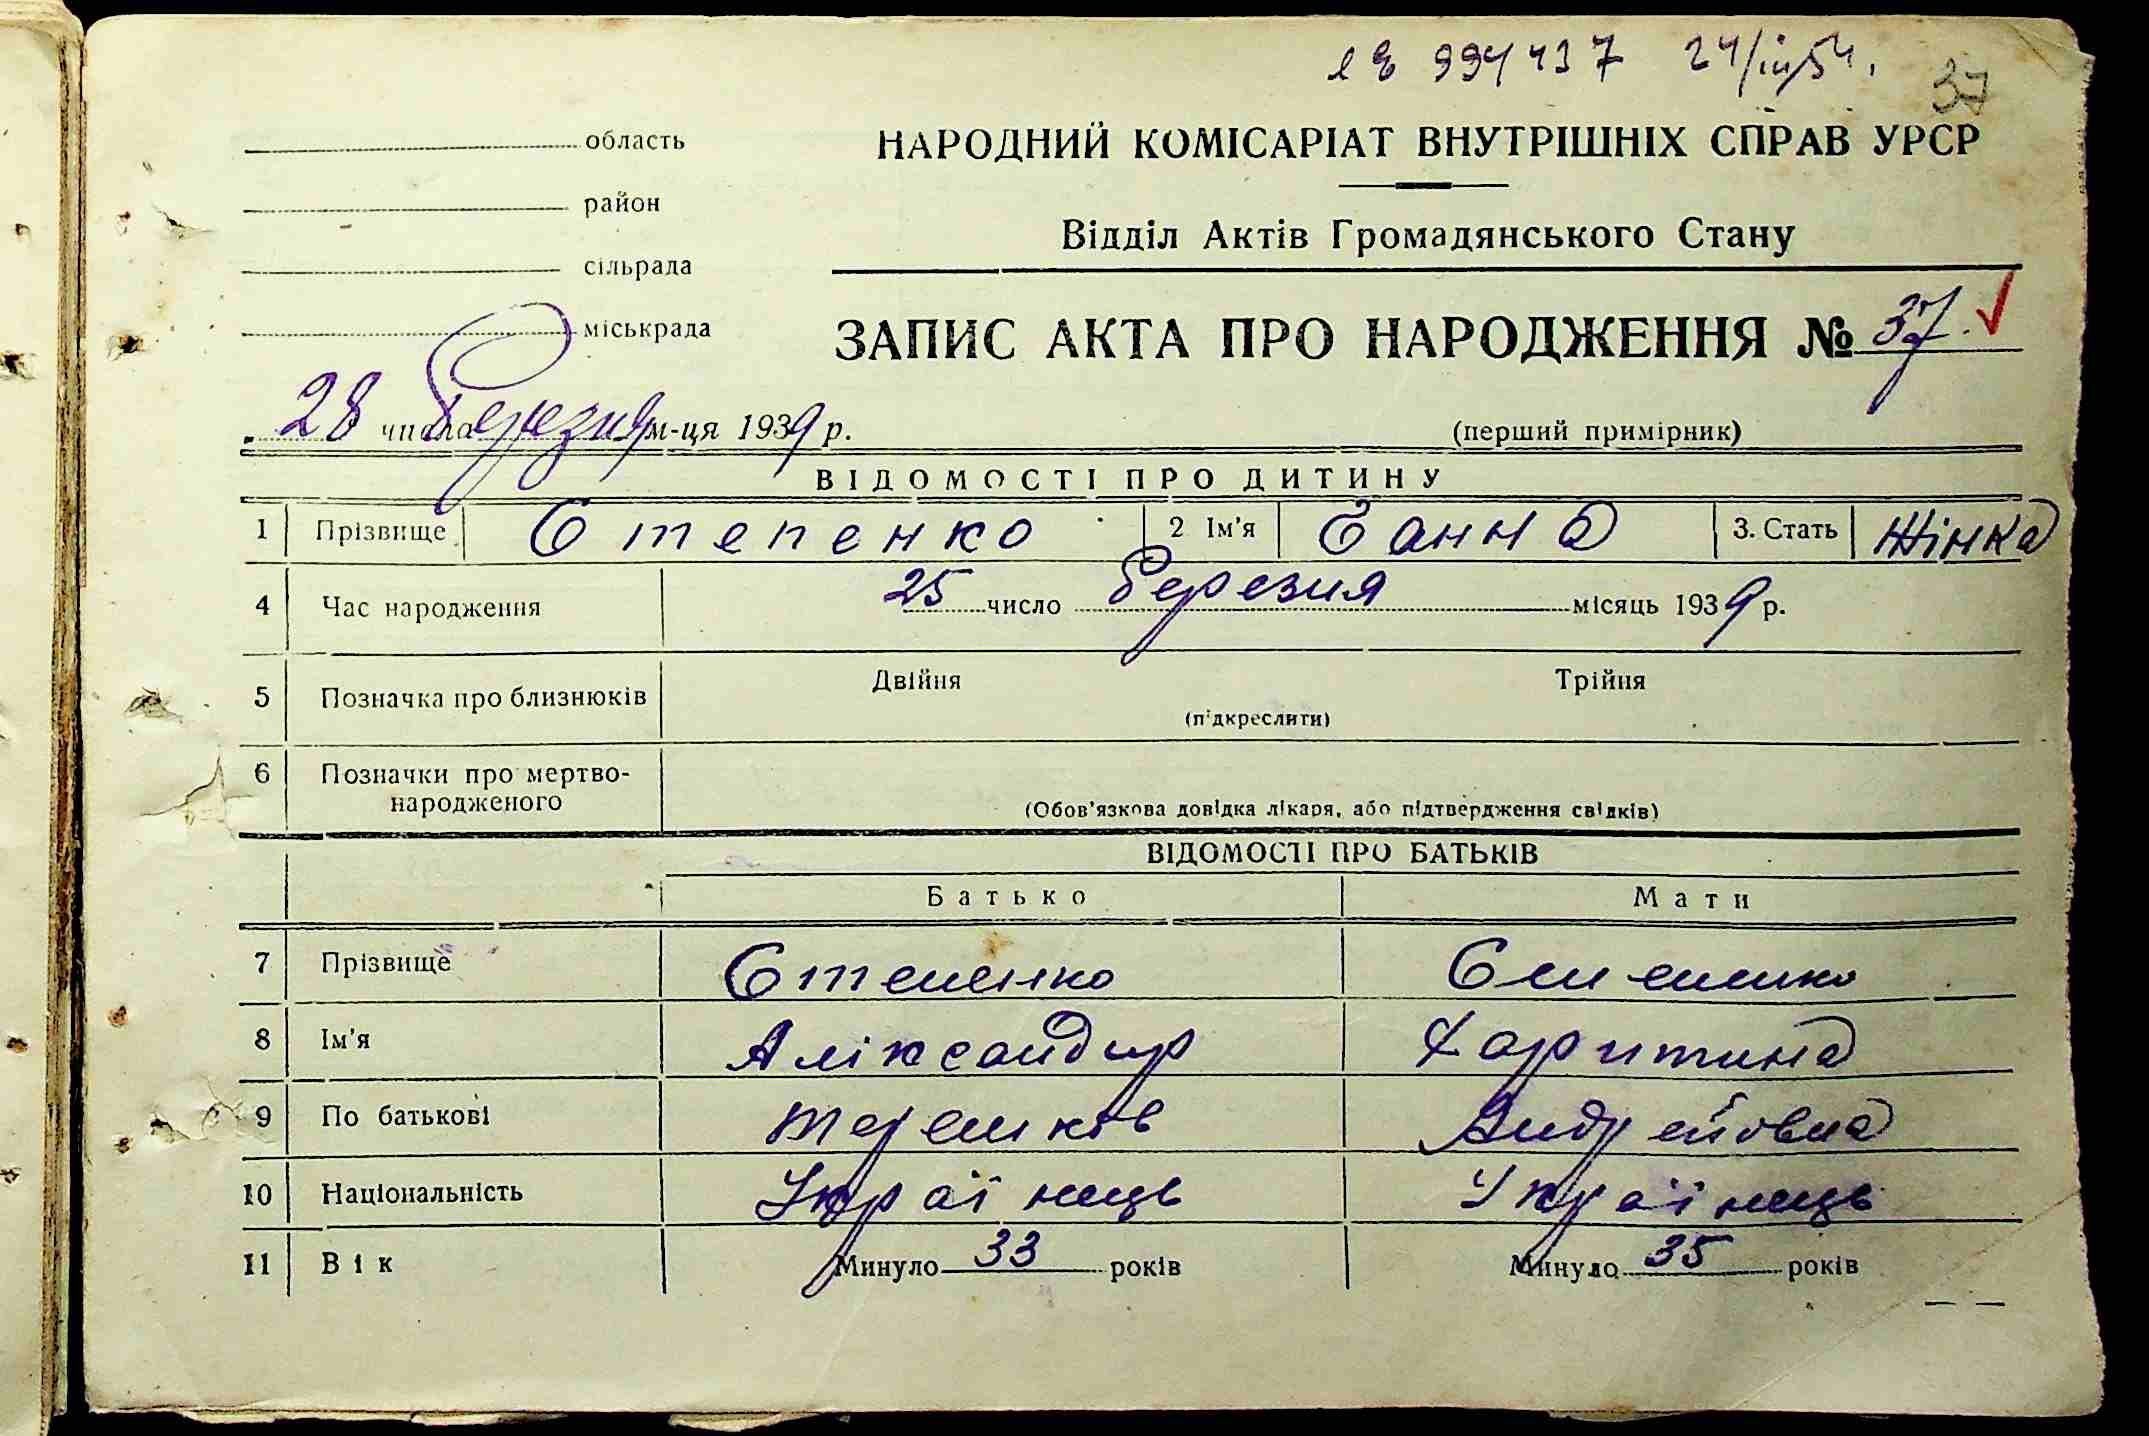 994437 24/III 54.
37
область
НАРОДНИЙ КОМІСАРІАТ ВНУТРІШНІХ СПРАВ УРСР
район
Відділ Актів Громадянського Стану
сільрада
міськрада
ЗАПИС АКТА ПРО НАРОДЖЕННЯ № 37.
28 числа березня м-ця 1939 р.
(перший примірник)
ВІДОМОСТІ ПРО ДИТИНУ
1 Прізвище Степенко 2 Ім'я Ганна 3. Стать Жінка
4 Час народження 25 число березня місяць 1939 р.
5 Позначка про близнюків Двійня Трійня
(підкреслити)
6 Позначки про мертво-
народженого
(Обов'язкова довідка лікаря, або підтвердження свідків)
ВІДОМОСТІ ПРО БАТЬКІВ
Батько Мати
7 Прізвище Степенко Степенко
8 Ім'я Аліксандр Харитина
9 По батькові Андрейовна
10 Національність Українець Українець
11 Вік Минуло 33 років Минуло 35 років